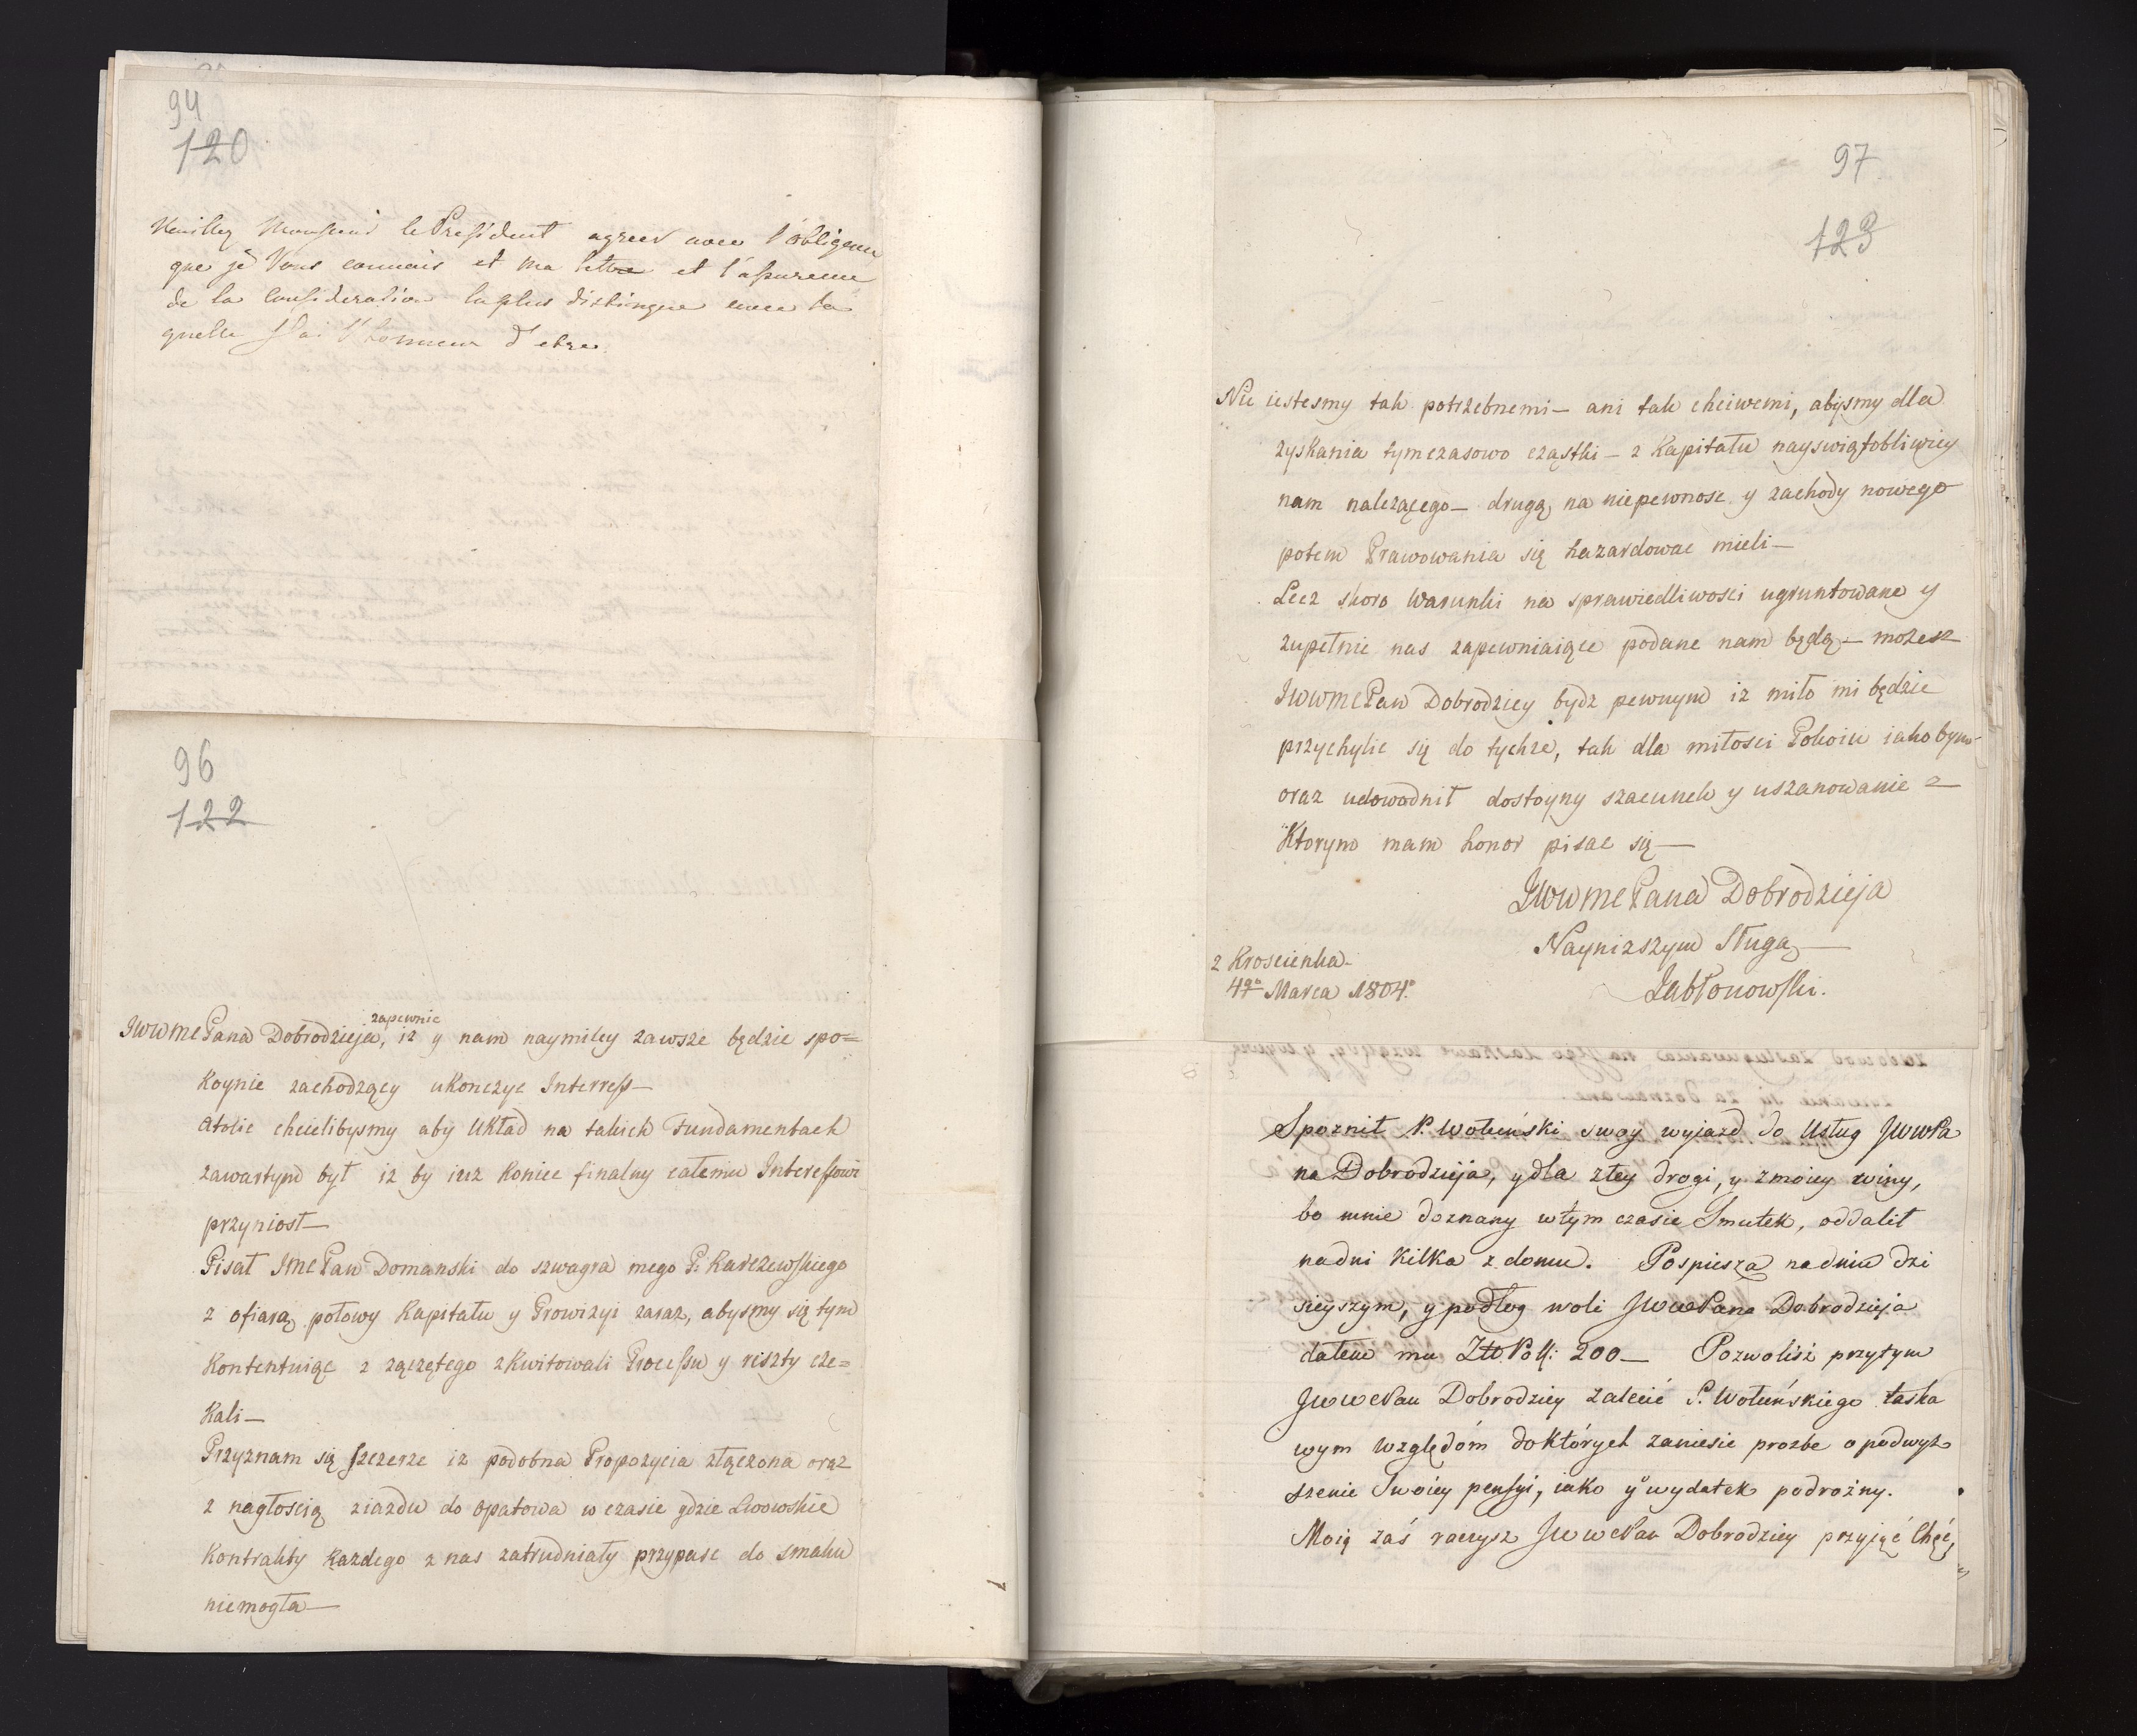 94
120
Veuillez Monsieur le President agreer avec l'obligence
que je Vous connais et ma lettre et l'assurence
de la consideration la plus distingue avec la
quelle J'ai l'honneur d'etre
96
122
JWWMCPana Dobrodzieja, zapewnie iz y nam naymiley zawsze będzie spo=
koynie zachodzący ukonczyc Interress—
Atolic chcielibysmy aby Układ na takich Fundamentach
zawartym był iz by iuz koniec finalny całemu Interessowi
przyniosł—
Pisał JMCPan Domanski do szwagra mego P. Karczewskiego
z ofiarą połowy Kapitału y Prowizyi zaraz, abysmy się tym
kontentuiąc z zączętego zkwitowali Processu y riszty cze=
kali—
Przyznam się szczerze iz podobna Propozycia złączona oraz
z nagłoscią ziazdu do Opatowa w czasie gdzie Lwowskie
Kontrakty kazdego z nas zatrudniały przypasc do smaku
niemogła—
97
123
Nie iestesmy tak potrzebnemi— ani tak chciwemi, abysmy dla
zyskania tymczasowo cząstki— z Kapitału nayswiątobliwiey
nam nalezącego— drugą na niepewnosc y zachody nowego
potem Prawowania się hazardowac mieli—
Lecz skoro Warunki na sprawiedliwosci ugruntowane y
zupełnie nas zapewniaiące podane nam będą— mozesz
JWWMCPan Dobrodziey bydz pewnym iz miło mi będzie
przychylic się do tychze, tak dla miłosci Pokoiu iako bym
oraz udowodnił dostoyny szacunek y uszanowanie z
Ktorym mam honor pisac się—
JWWMCPana Dobrodzieja
Naynizszym Sługą—
Jabłonowski.
z Kroscienka.
4go Marca 1804o
Spoznił P. Wołuński swoy wyjazd do Usług JWWPa
na Dobrodzieja, y dla złey drogi, y z moiey winy,
bo mnie doznany w tym czasie Smutek, oddalił
na dni kilka z domu. Pospiesza na dniu dzi
sieyszym, y podług woli JWWPana Dobrodzieja
dałem mu Złł Pols: 200— Pozwolisz przytym
JWWPan Dobrodziey zalecić P. Wołuńskiego łaska
wym względóm do których zaniesie prozbe o podwyż
szenie Swoiey pensyi, iako y wydatek podrożny.
Moią zaś raczysz JWWPan Dobrodziey przyjąć Chęć,